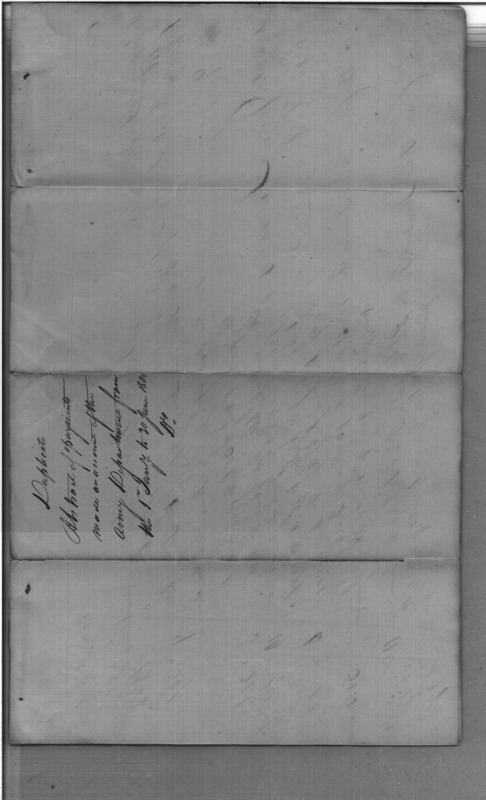 Duplicate
Abstract of payments
made on account of the
Army Department from
the 1st Jany to 30 June
Do.